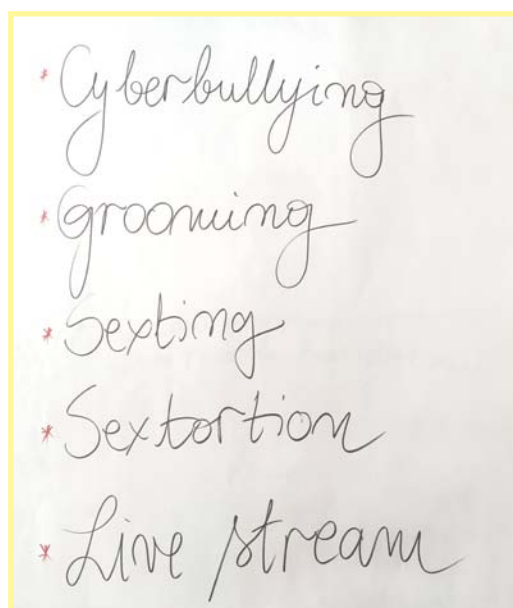 * Cyberbullying
* grooming
* Sexting
* Sextortion
* Live stream